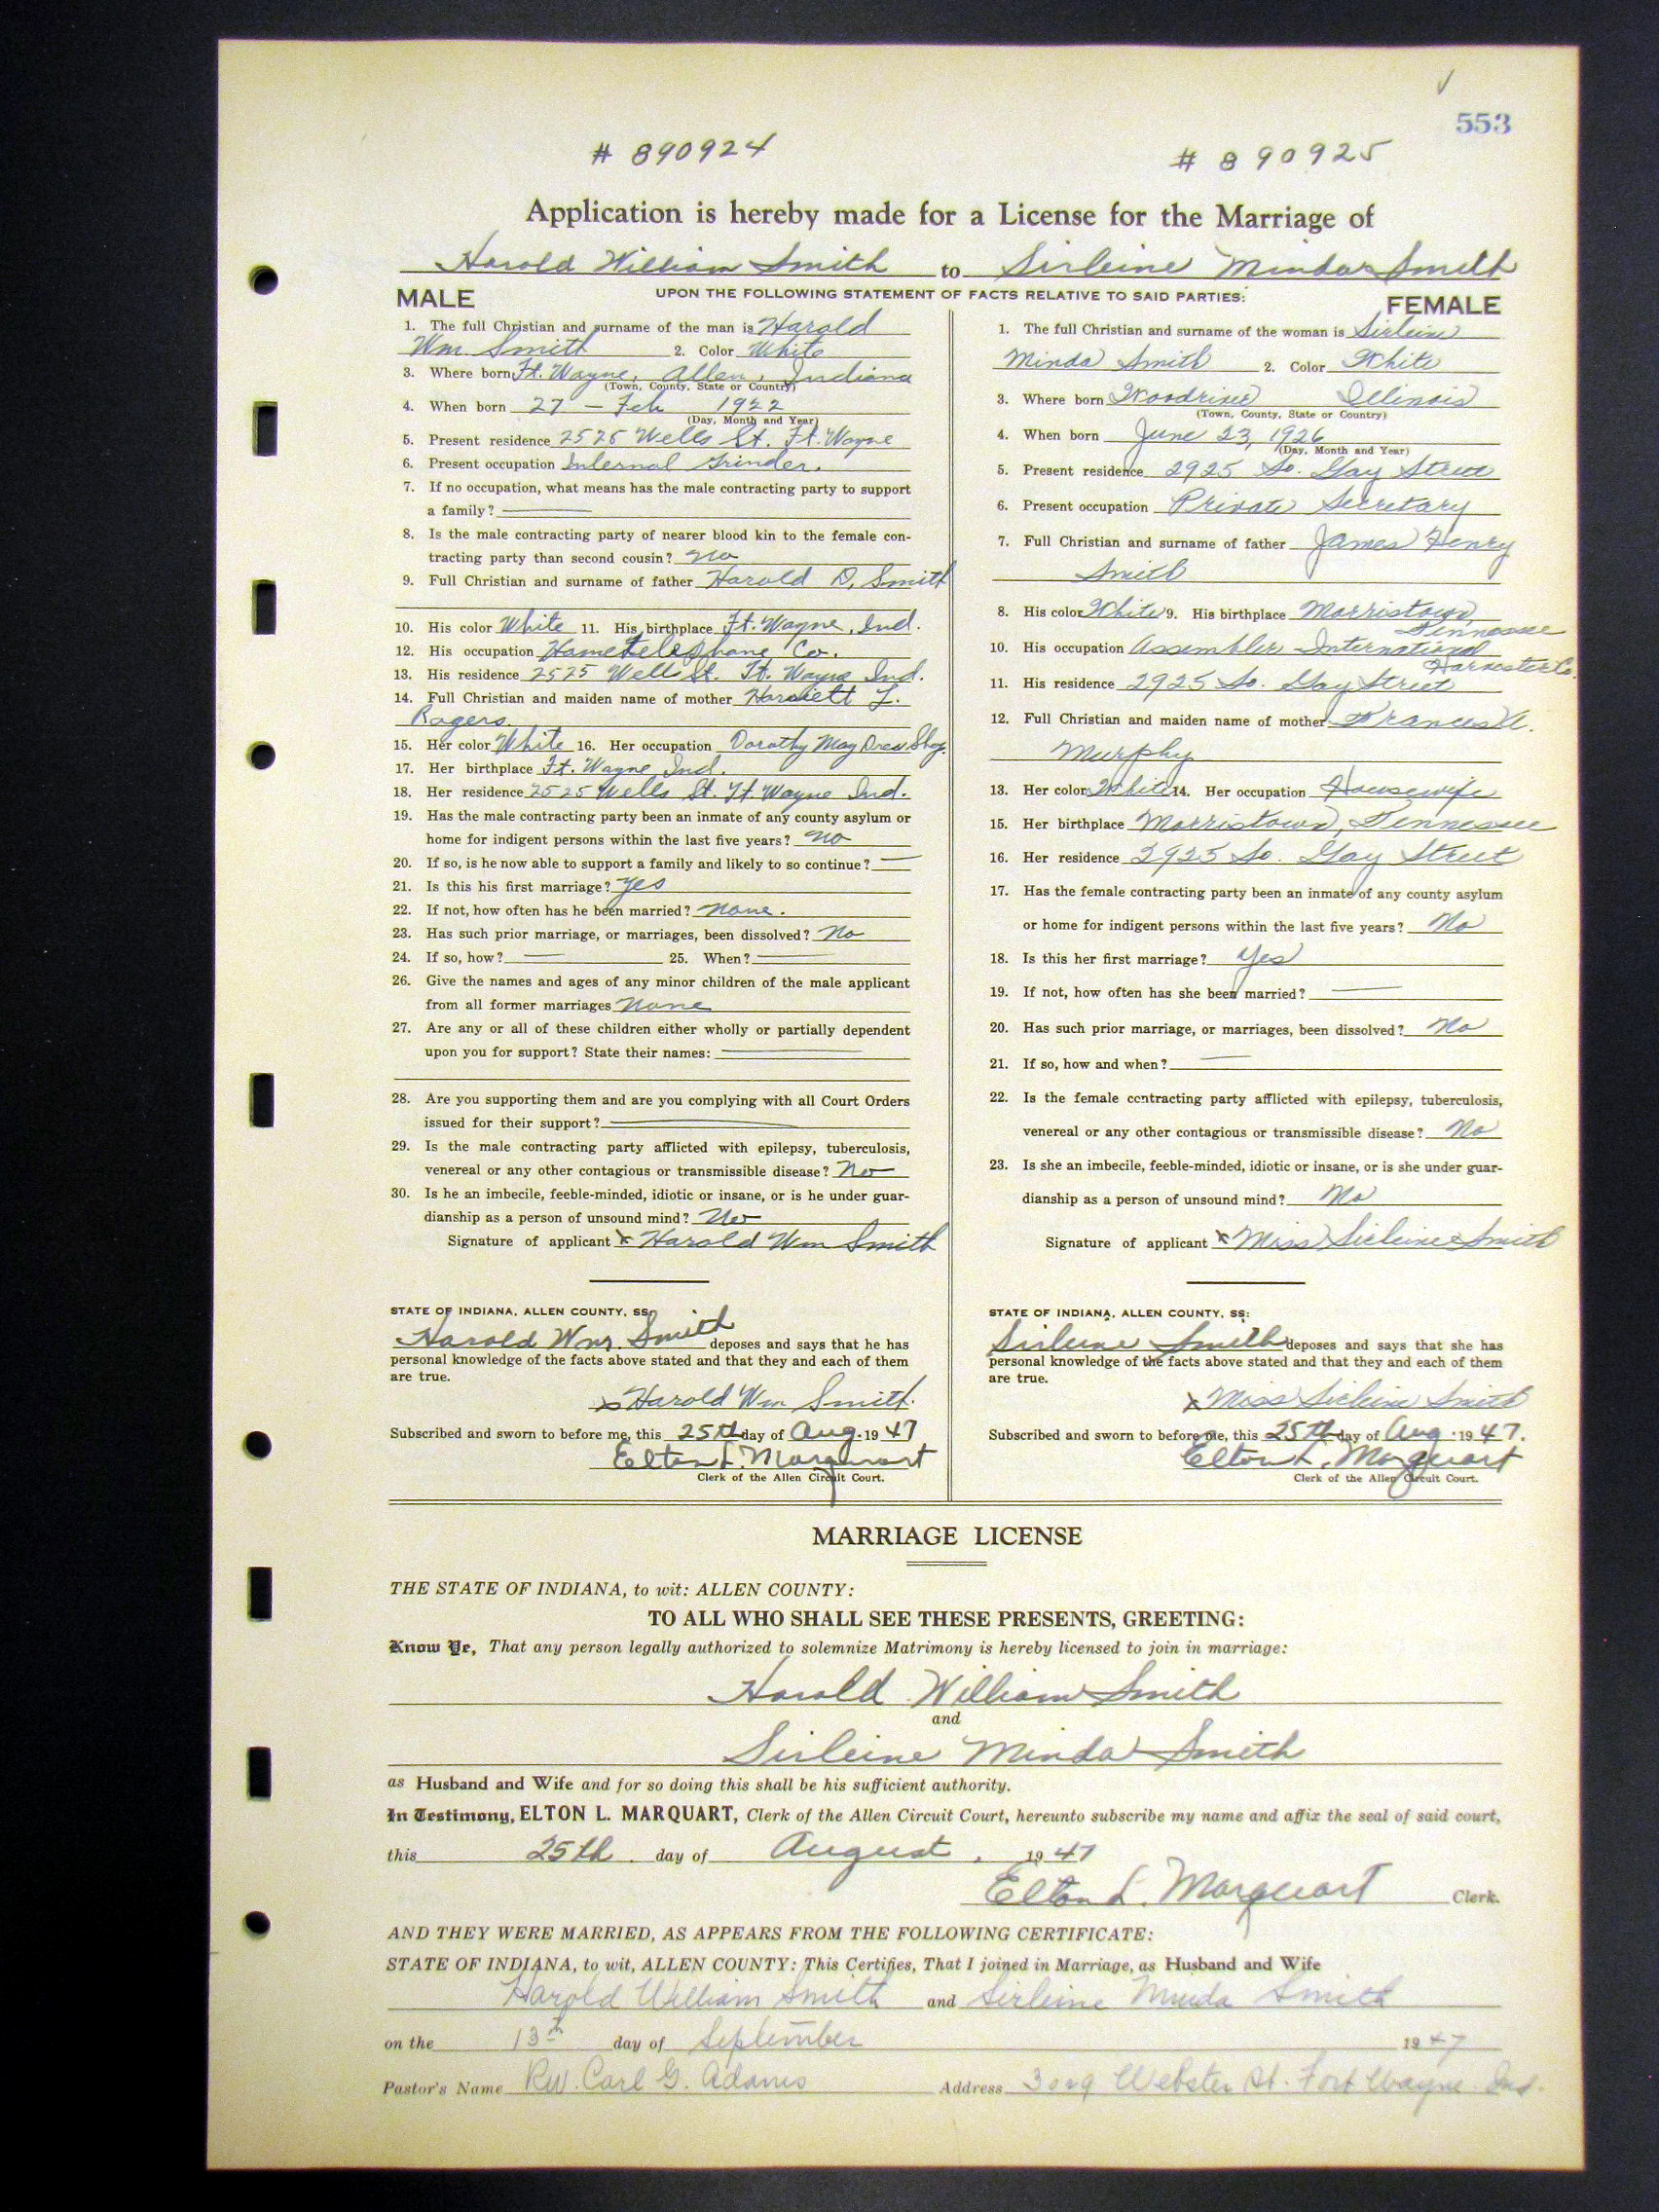 553
# 890924 # 890925
Application is hereby made for a License for the Marriage of
Harold William Smith to Sirleine Minda Smith
UPON THE FOLLOWING STATEMENT OF FACTS RELATIVE TO SAID PARTIES:
MALE
1. The full Christian and surname of the man is Harold
Wm. Smith 2. Color White
3. Where born Ft. Wayne, Allen, Indiana
(Town, County, State or Country)
4. When born 27 - Feb 1922
(Day, Month and Year)
5. Present residence 2525 Wells St. Ft. Wayne
6. Present occupation Internal Grinder.
7. If no occupation, what means has the male contracting party to support
a family?
8. Is the male contracting party of nearer blood kin to the female con-
tracting party than second cousin? No
9. Full Christian and surname of father Harold D. Smith
10. His color White 11. His birthplace Ft. Wayne, Ind.
12. His occupation Home telephone Co.
13. His residence 2525 Wells St. Ft. Wayne Ind.
14. Full Christian and maiden name of mother Harriett L.
Rogers.
15. Her color White 16. Her occupation Dorothy May Dress Shop.
17. Her birthplace Ft. Wayne Ind.
18. Her residence 2525 Wells St. Ft. Wayne Ind.
19. Has the male contracting party been an inmate of any county asylum or
home for indigent persons within the last five years? No
20. If so, is he now able to support a family and likely to so continue?
21. Is this his first marriage? Yes
22. If not, how often has he been married? None.
23. Has such prior marriage, or marriages, been dissolved? No
24. If so, how? 25. When?
26. Give the names and ages of any minor children of the male applicant
from all former marriages None
27. Are any or all of these children either wholly or partially dependent
upon you for support? State their names:
28. Are you supporting them and are you complying with all Court Orders
issued for their support?
29. Is the male contracting party afflicted with epilepsy, tuberculosis,
venereal or any other contagious or transmissible disease? No
30. Is he an imbecile, feeble-minded, idiotic or insane, or is he under guar-
dianship as a person of unsound mind? No
Signature of applicant x Harold Wm Smith
STATE OF INDIANA, ALLEN COUNTY, SS:
Harold Wm. Smith deposes and says that he has
personal knowledge of the facts above stated and that they and each of them
are true.
x Harold Wm Smith.
Subscribed and sworn to before me, this 25th day of Aug. 1947
Elton L. Marquart
Clerk of the Allen Circuit Court.
FEMALE
1. The full Christian and surname of the woman is Sirleine
Minda Smith 2. Color White
3. Where born Woodriver Illinois
(Town, County, State or Country)
4. When born June 23, 1926
(Day, Month and Year)
5. Present residence 2925 So. Gay Street
6. Present occupation Private Secretary
7. Full Christian and surname of father James Henry
Smith
8. His color White 9. His birthplace Morristown,
Tennessee
10. His occupation Assembler International
Harvester Co.
11. His residence 2925 So. Gay Street
12. Full Christian and maiden name of mother Frances A.
Murphy
13. Her color White 14. Her occupation Housewife
15. Her birthplace Morristown, Tennessee
16. Her residence 2925 So. Gay Street
17. Has the female contracting party been an inmate of any county asylum
or home for indigent persons within the last five years? No
18. Is this her first marriage? Yes
19. If not, how often has she been married?
20. Has such prior marriage, or marriages, been dissolved? No
21. If so, how and when?
22. Is the female contracting party afflicted with epilepsy, tuberculosis,
venereal or any other contagious or transmissible disease? No
23. Is she an imbecile, feeble-minded, idiotic or insane, or is she under guar-
dianship as a person of unsound mind? No
Signature of applicant x Miss Sirleine Smith
STATE OF INDIANA, ALLEN COUNTY, SS:
Sirleine Smith deposes and says that she has
personal knowledge of the facts above stated and that they and each of them
are true.
x Miss Sirleine Smith
Subscribed and sworn to before me, this 25th day of Aug. 1947.
Elton L. Marquart
Clerk of the Allen Circuit Court.
MARRIAGE LICENSE
THE STATE OF INDIANA, to wit: ALLEN COUNTY:
TO ALL WHO SHALL SEE THESE PRESENTS, GREETING:
Know Ye, That any person legally authorized to solemnize Matrimony is hereby licensed to join in marriage:
Harold William Smith
and
Sirleine Minda Smith
as Husband and Wife and for so doing this shall be his sufficient authority.
In Testimony, ELTON L. MARQUART, Clerk of the Allen Circuit Court, hereunto subscribe my name and affix the seal of said court,
this 25th. day of August, 1947
Elton L. Marquart Clerk.
AND THEY WERE MARRIED, AS APPEARS FROM THE FOLLOWING CERTIFICATE:
STATE OF INDIANA, to wit, ALLEN COUNTY: This Certifies, That I joined in Marriage, as Husband and Wife
Harold William Smith and Sirleine Minda Smith
on the 13th day of September 1947
Pastor's Name Rev. Carl G. Adams Address 3029 Webster St. Fort Wayne Ind.